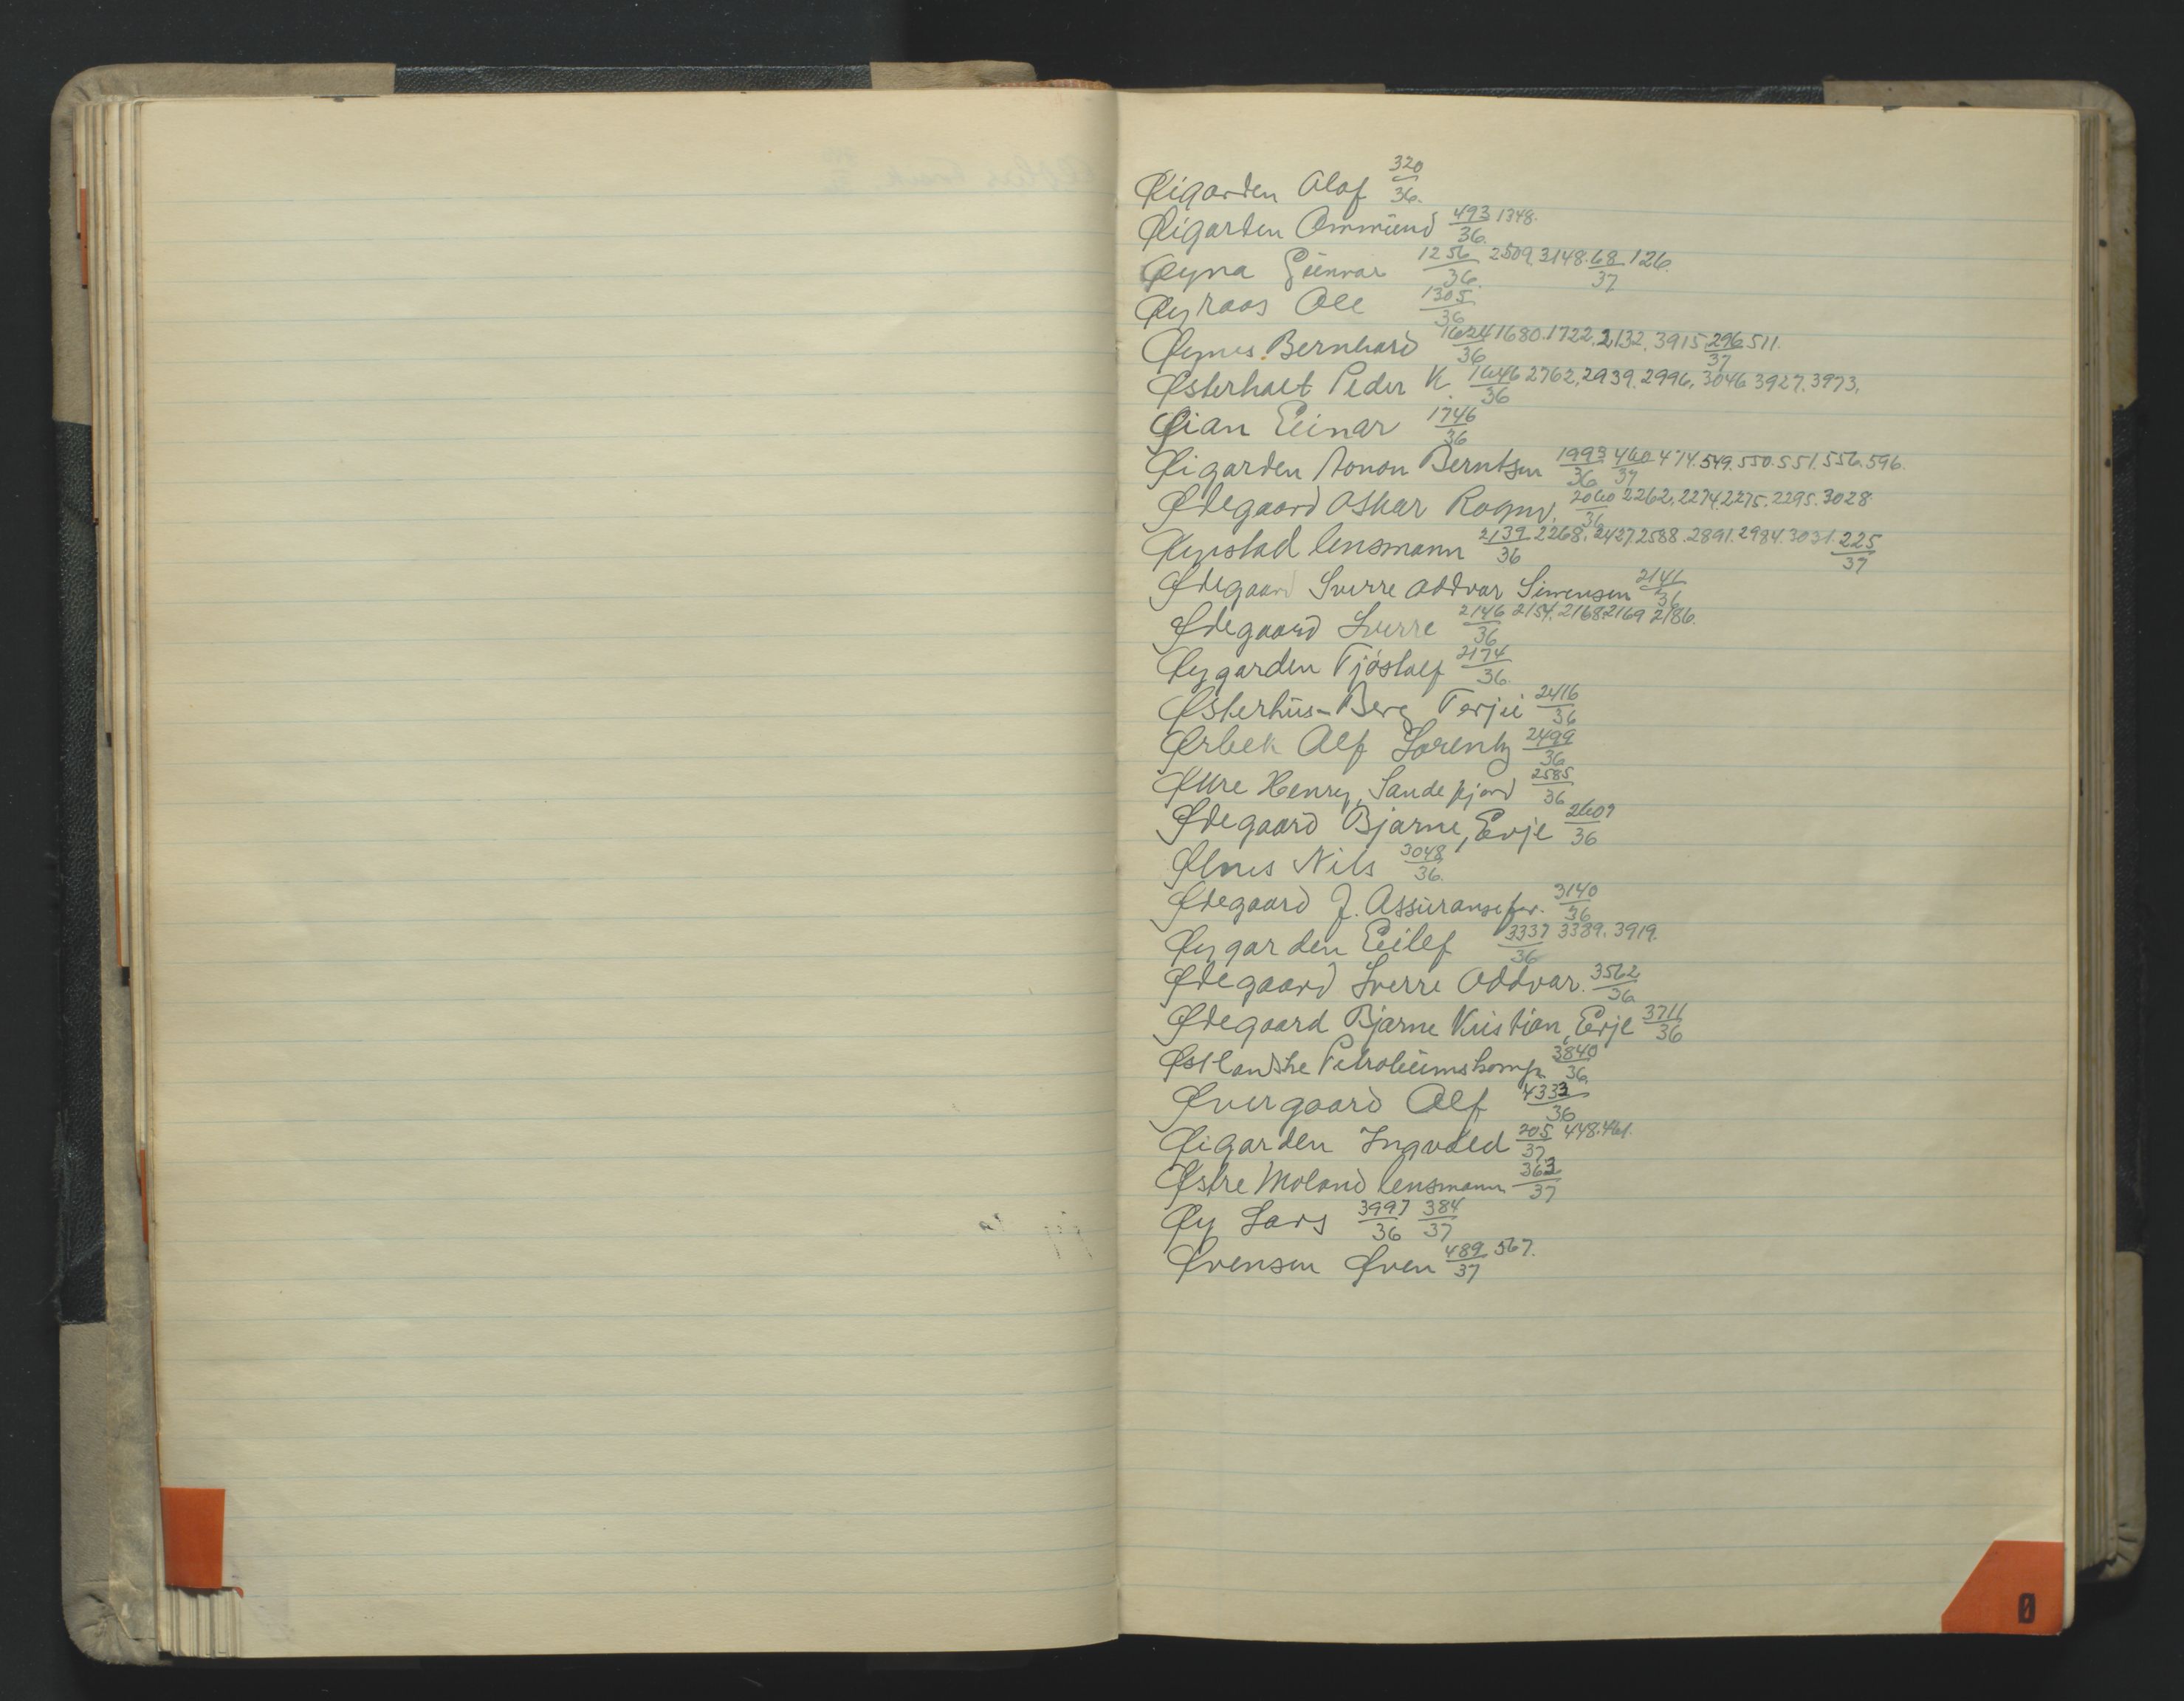 Øigarden Olaf 320/36.
Øigarden Ommund 493/36. 1348.
Øyna Gunvar 1256/36. 2509. 3148. 68/37 126.
Øyraas Ole 1305/36
Øynes Bernhard 1624/36 1680. 1722. 2132. 3915 296/37 511.
Østerholt Peder K. 1646/36 2762. 2939. 2996. 3046 3927. 3973.
Øian Einar 1746/36
Øigarden Aanon Berntsen 1993/36 460/37 474. 549. 550. 551. 556. 596.
Ødegaard Oskar Ragnv. 2060/36 2262. 2274. 2275. 2295. 3028.
Øyestad lensmann 2139/36 2268. 2427. 2588. 2891. 2984. 3031. 225/37
Ødegaard Sverre Oddvar Simensen 2141/36
Ødegaard Sverre 2146/36 2154. 2168. 2169 2186.
Øygarden Tjøstolf 2174/36.
Østerhus-Berg Terjei 2416/36
Ørbek Alf Lorentz 2499/36
Øure Henry, Sandefjord 2585/36
Ødegaard Bjarne, Evje 2607/36
Ølnes Nils 3048/36.
Ødegaard J. Assuransefor. 3140/36
Øygarden Eilef 3337/36 3389. 3919.
Ødegaard Sverre Oddvar. 3562/36
Ødegaard Bjarne Kristian, Evje 3711/36
Østlandske Petroleumskomp. 3840/36.
Øvergaard Alf 4333/36
Øigarden Ingvald 205/37. 448. 461.
Østre Moland lensmann 363/37
Øy Lars 3997/36 384/37
Øvensen Øven 489/37 567.
Ø